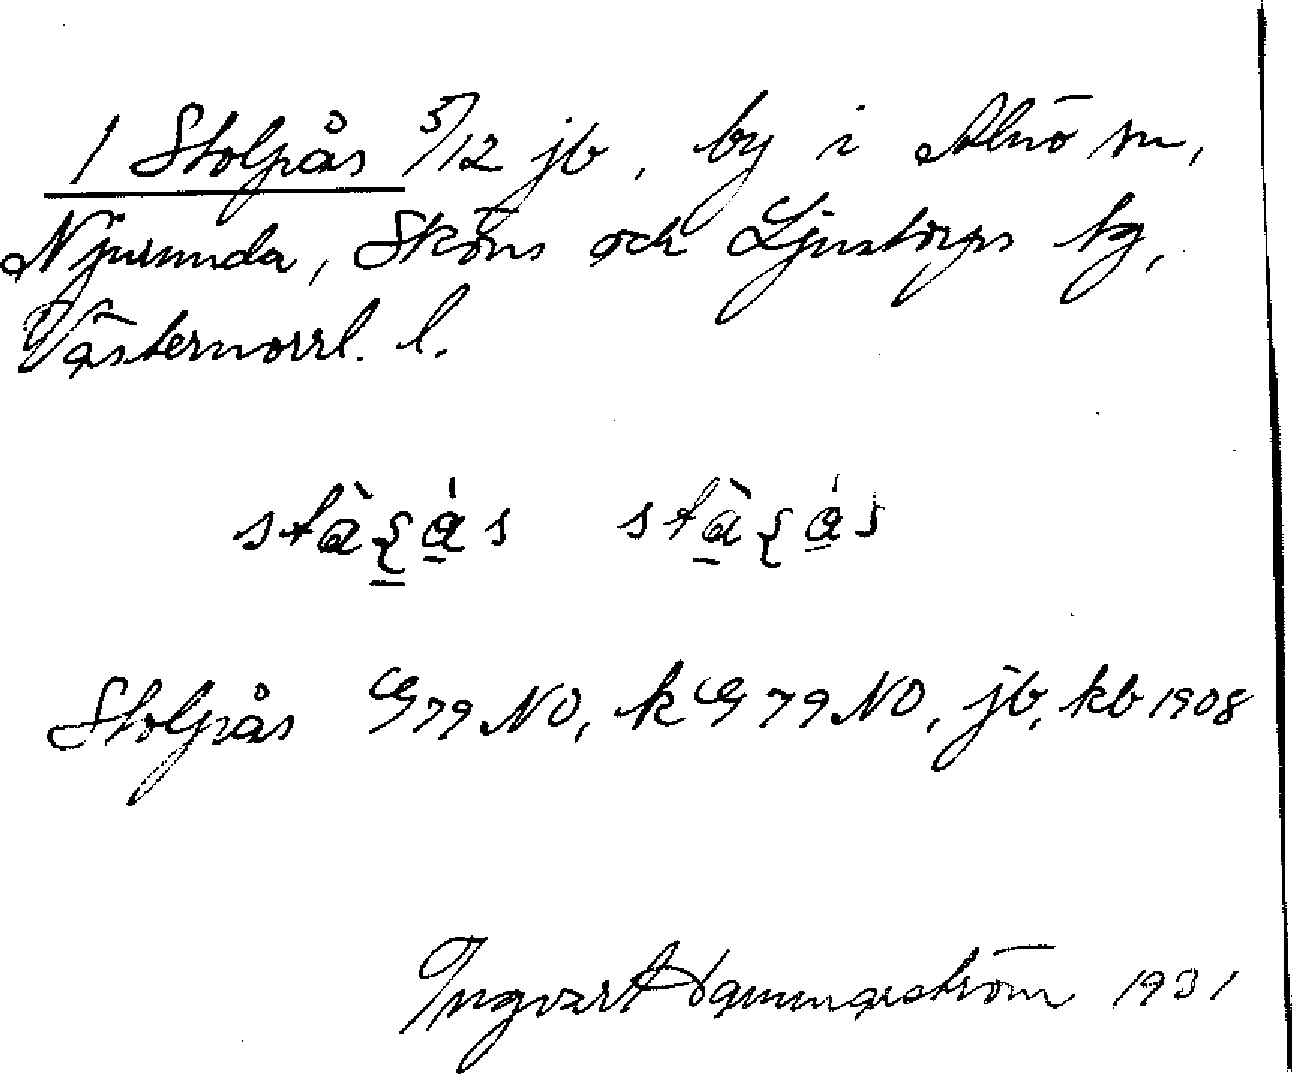 1 Stolpås 5/12 jb, by i Alnö sn,
Njurunda, Sköns och Ljustorps tg,
Västernorrl. l.
Stolpås G79 NO, k G 79 NO, jb, kb 1908
Ingvar Hammarström 1931